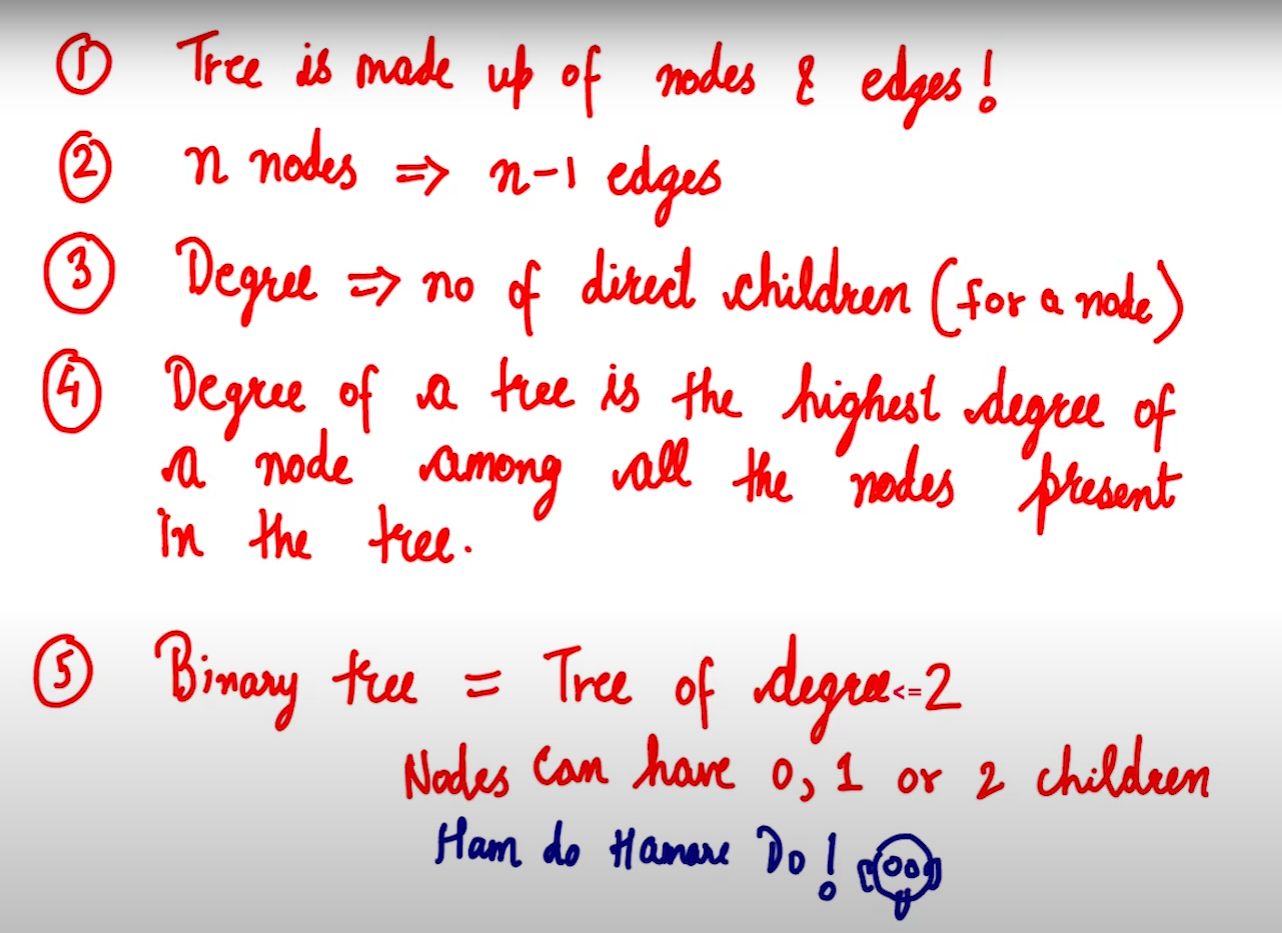 ① Tree is made up of nodes & edges!
② n nodes => n-1 edges
③ Degree => no of direct children (for a node)
④ Degree of a tree is the highest degree of
a node among all the nodes present
in the tree.
⑤ Binary tree = Tree of degree <= 2
Nodes can have 0, 1 or 2 children
Ham do Hamare Do!